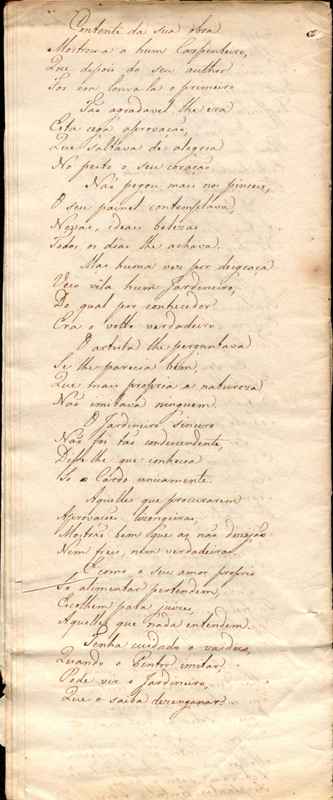 Contente da sua obra
Mostrou-a a hum Carpenteiro,
Que depois do seu author
Foi em louvala o primeiro
Tão agradavel lhe era
Esta cega aprovação,
Que saltava de alegria
No peito o seu coração
Não pegou mais nos pinceis,
O seu painel contemplava,
Novas, ideaes belezas
Todos os dias lhe achava.
Mas huma vez por desgraça
Veio vêla hum Jardineiro,
Do qual por conhecedor
Era o voto verdadeiro
O artista lhe perguntava
Se lhe parecia bem.
Que mais propria a natureza
Não imitava ninguem.
O Jardineiro sincero
Não foi tão condescendente,
Disse lhe que conhecia
So o Cardo unicamente.
Aquelles que procurarem
Aprovações lizongeiras,
Mostrão bem que as não dezejão
Nem fieis, nem verdadeiras.
E como o seu amor proprio
So alimentar pertendem,
Escolhem para juizes,
Aquelles que nada entendem.
Tenha cuidado o vaidozo,
Quando o Pintor imitar,
Pode vir o Jardineiro,
Que o saiba dezenganar.